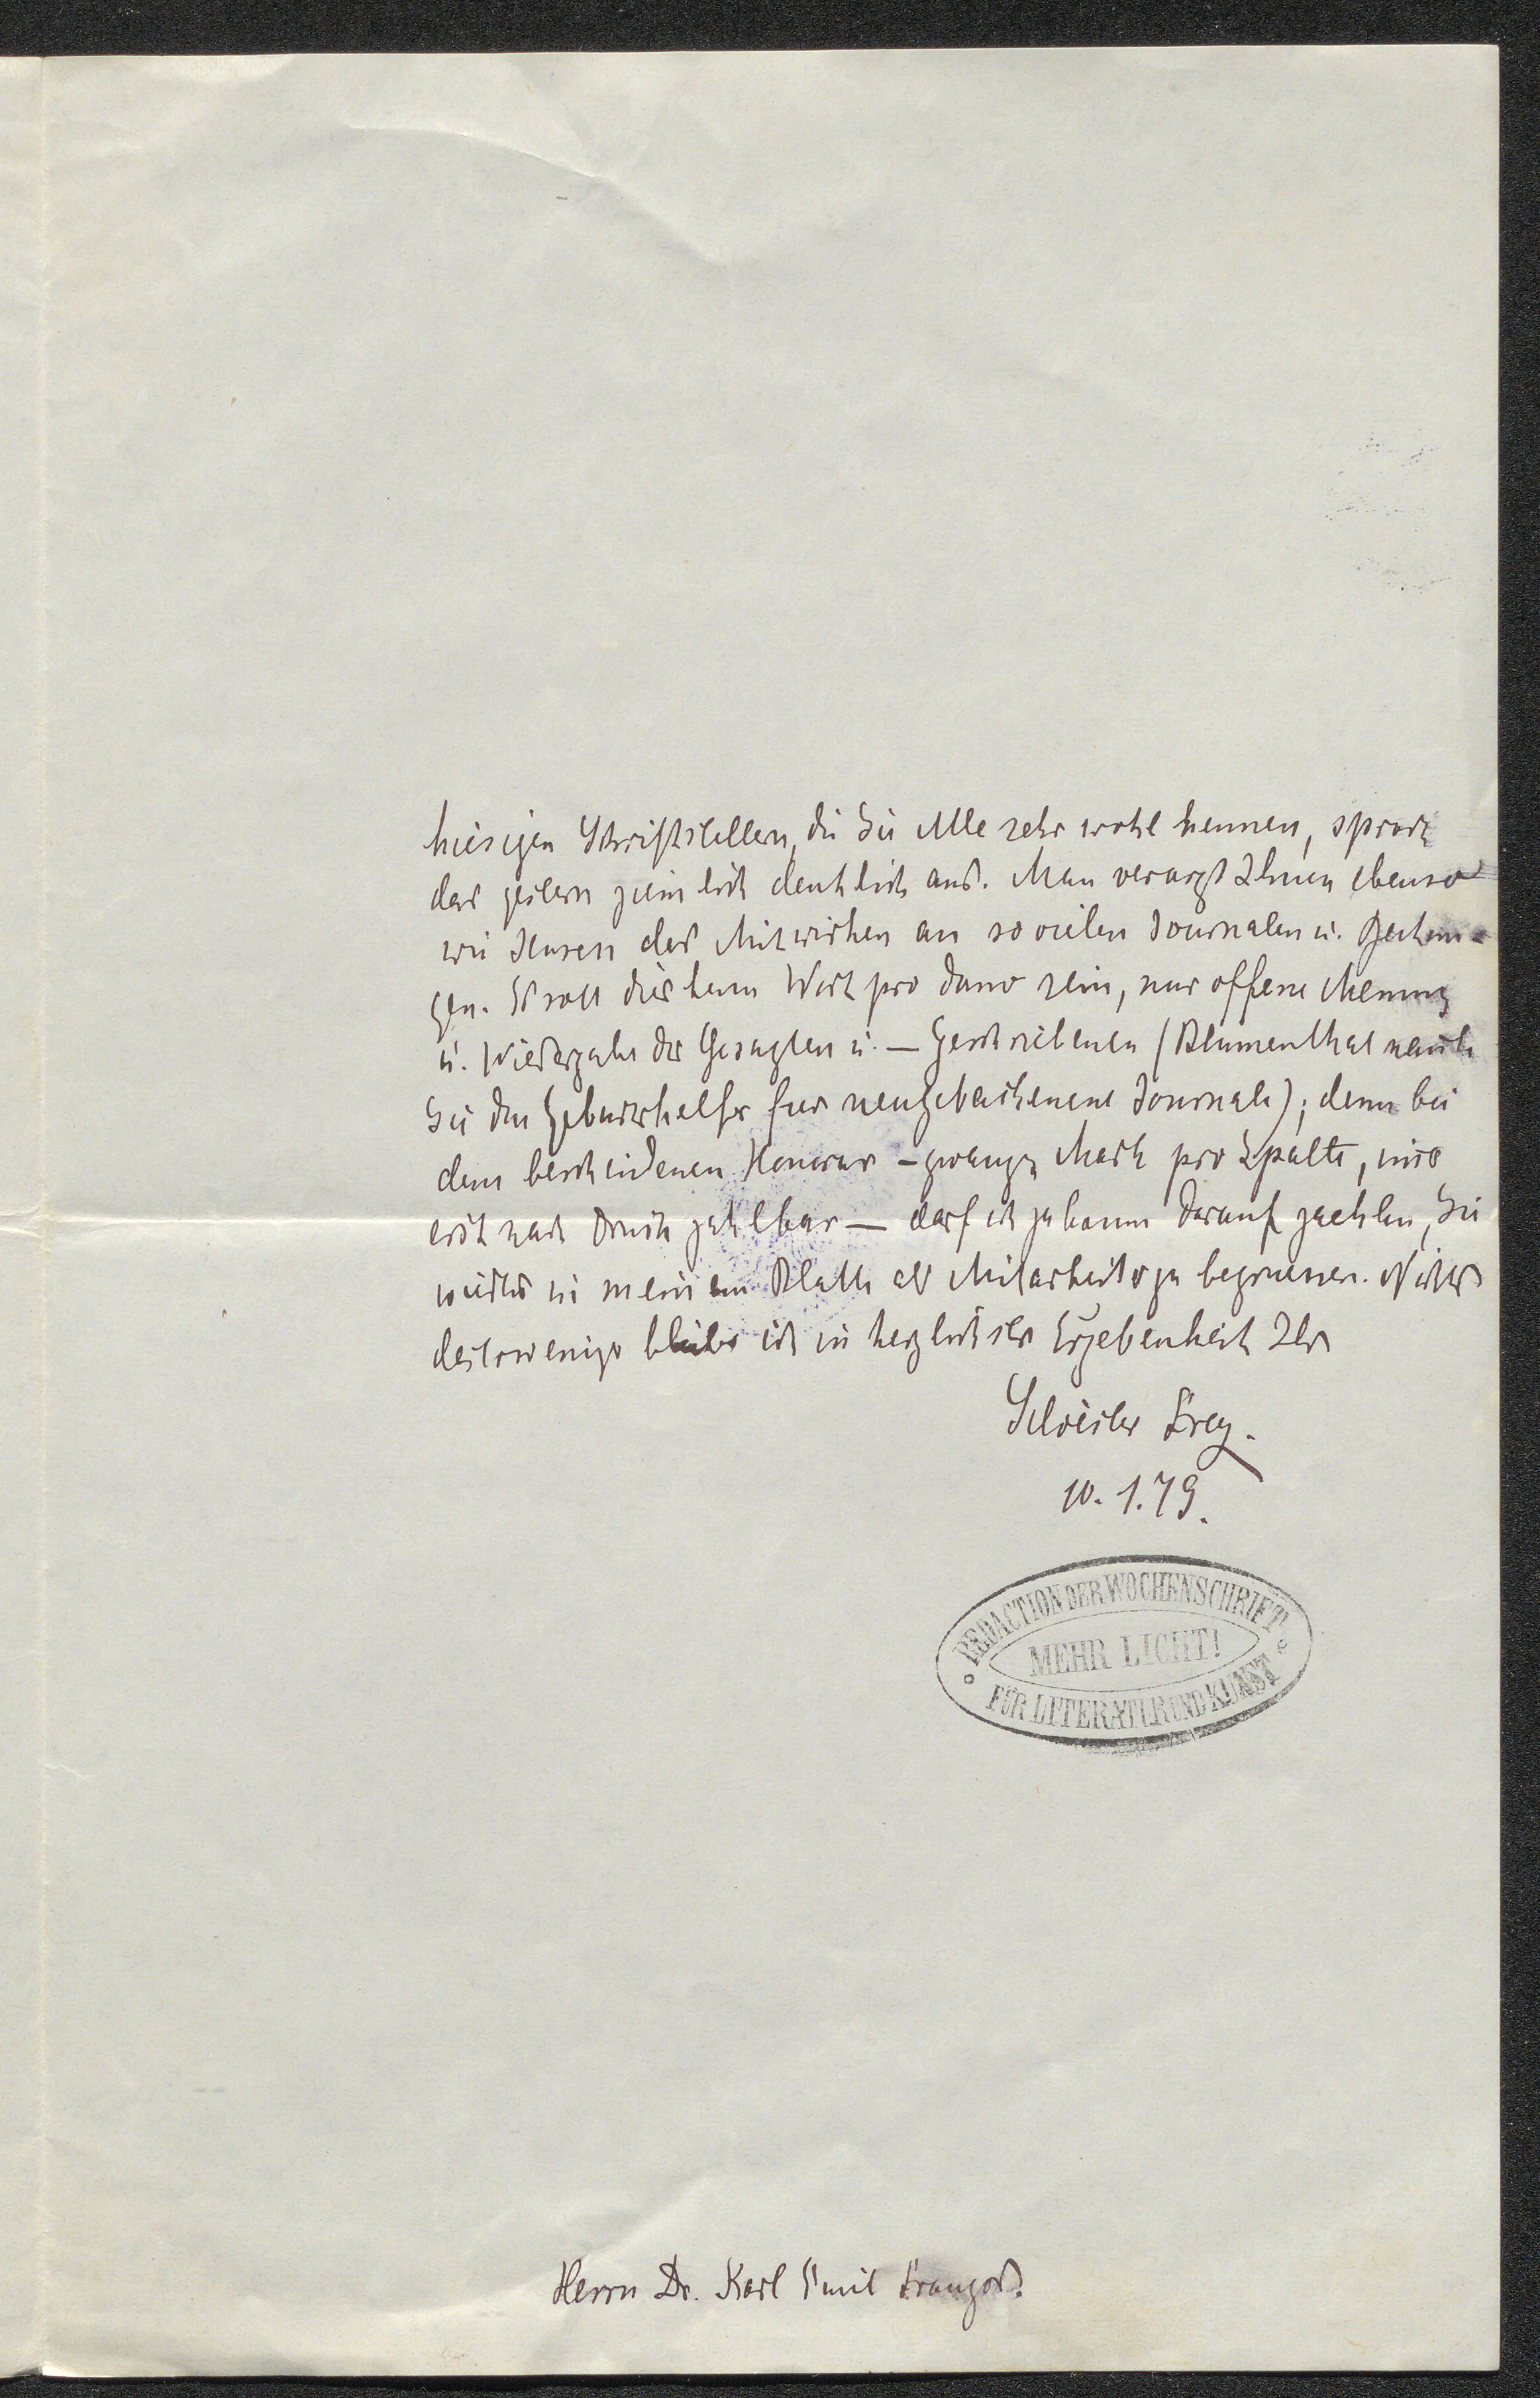 hiesigen Schriftstellern, die Sie Alle sehr wohl kennen, sprach
das gestern ziemlich deutlich aus. Man verargt Ihnen ebenso
wie Jensen das Mitwirken an so vielen Journalen u. Zeitun-
gen. Es soll dies kein Wort pro domo sein, nur offene Meinung
u. Wiedergabe des Gesagten u. — Geschriebenen (Blumenthal nannte
Sie den Geburtshelfer fuer neugebackenene Journale); denn bei
dem bescheidenen Honorar – zwanzig Mark pro Spalte, mir
erst nach Druck zahlbar — darf ich ja kaum darauf zaehlen, Sie
wieder in meinem Blatte als Mitarbeiter zu begruessen. Nichts
destoweniger bleibe ich in herzlichster Ergebenheit Ihr
Silvester Frey.
10. 1. 79.
REDACTION DER WOCHENSCHRIFT
MEHR LICHT!
FÜR LITERATUR UND KUNST
Herrn Dr. Karl Emil Franzos.